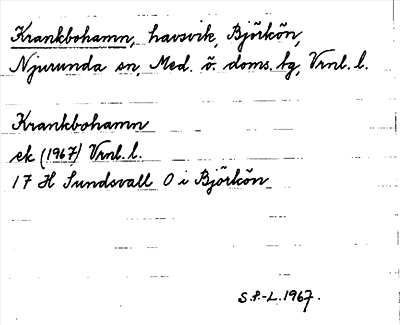 Krankbohamn, havsvik, Björkön,
Njurunda sn, Med. ö. doms. tg, Vrnl. l.
Krankbohamn
ek (1967) Vrnl. l.
17 H Sundsvall O i Björkön
S.P.-L. 1967.